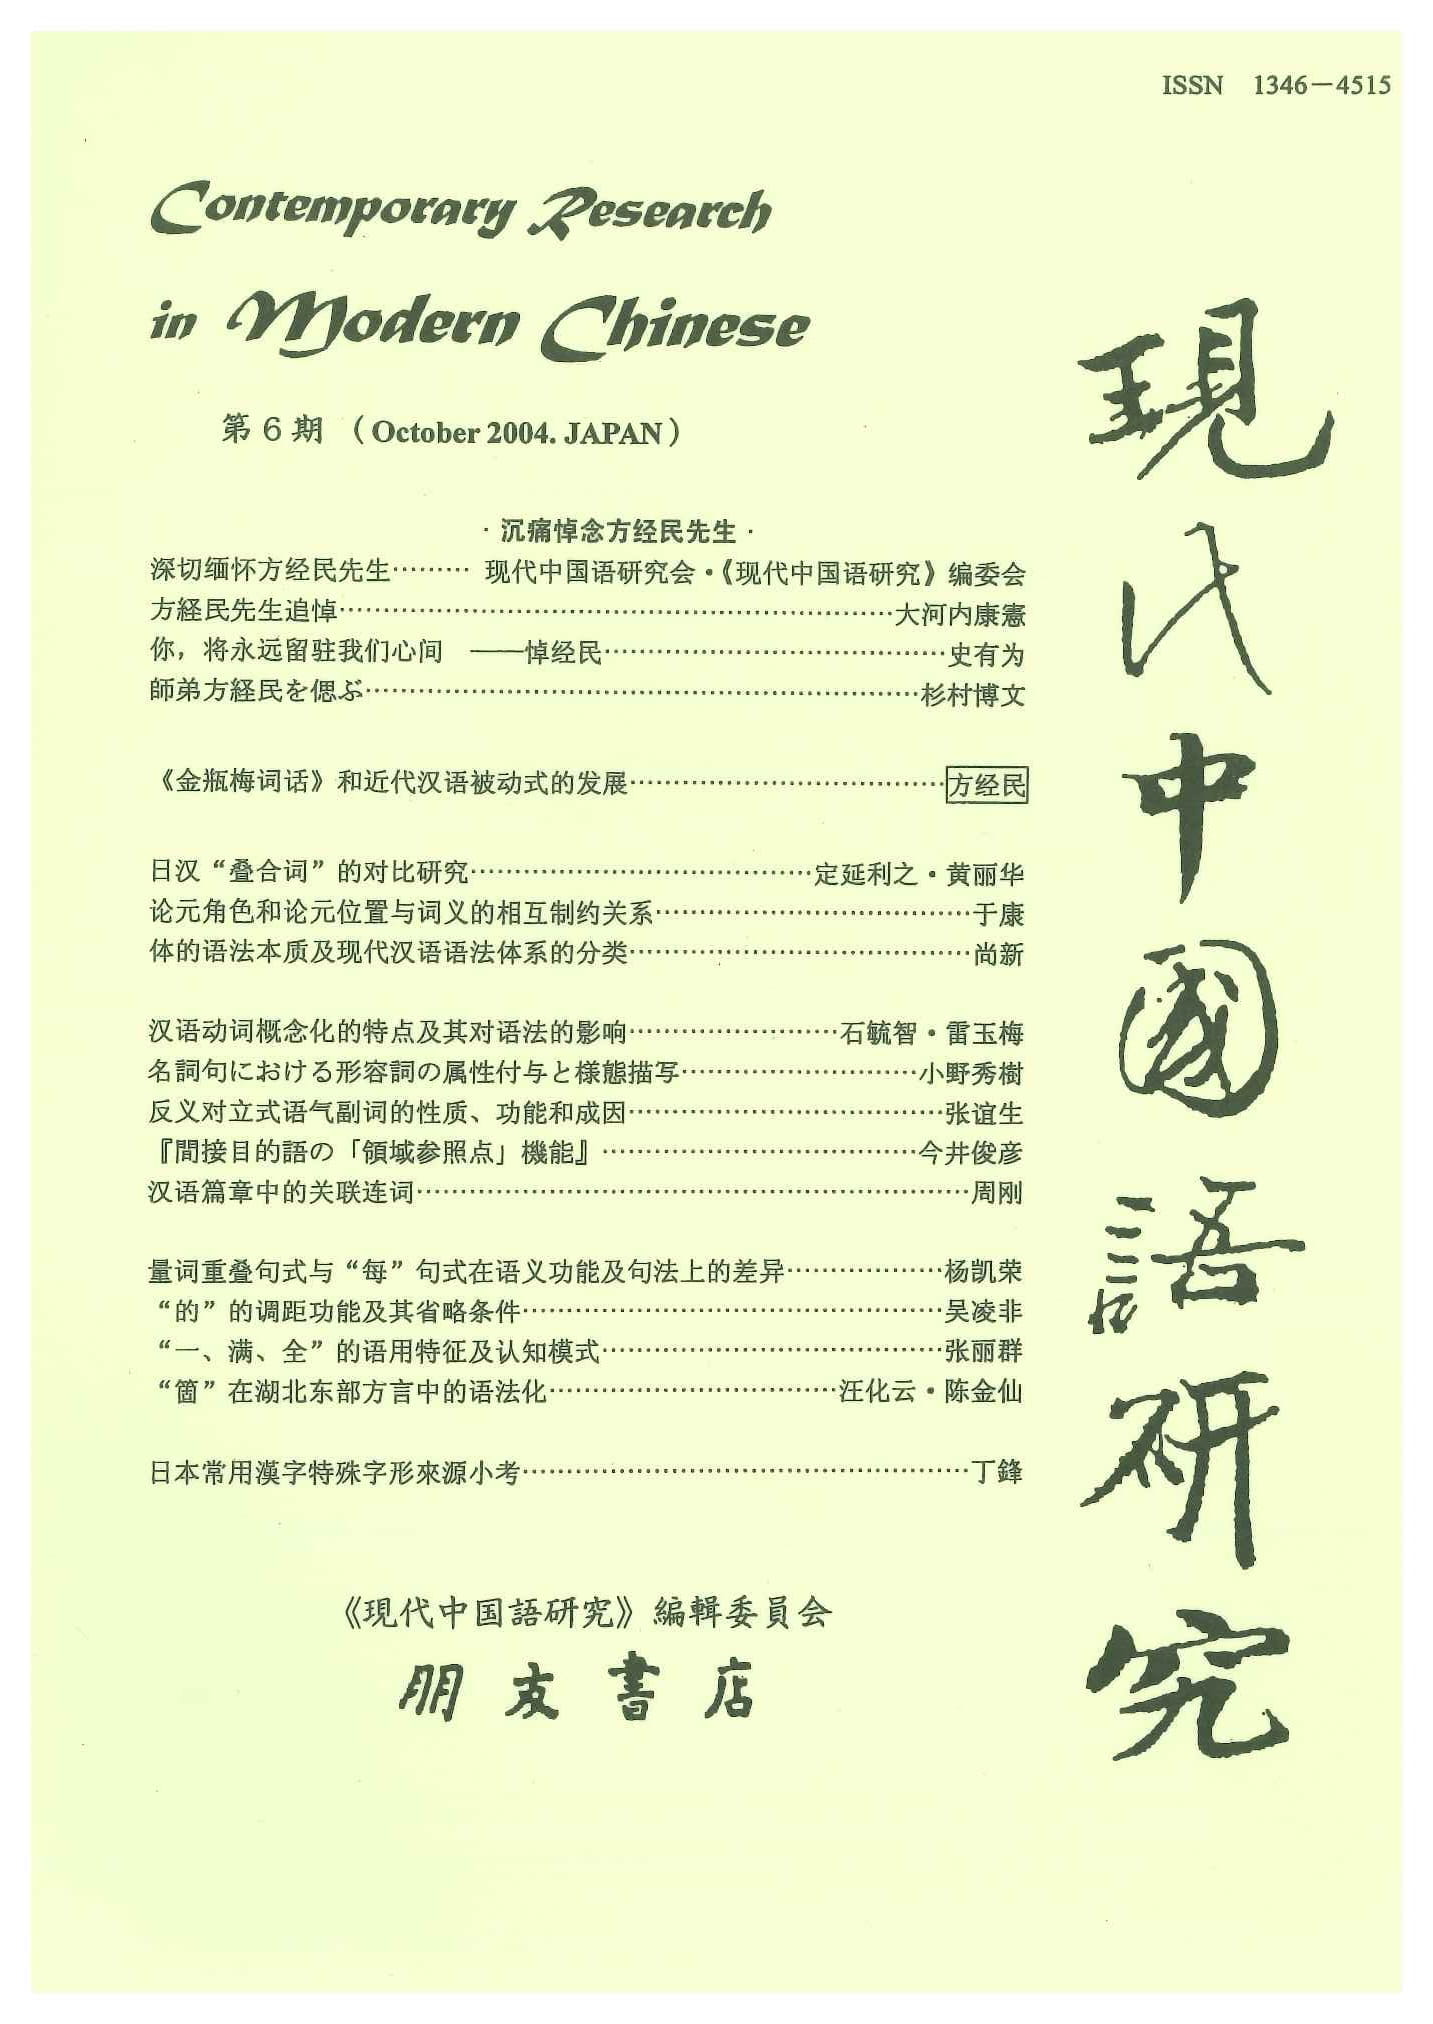 ISSN 1346－4515
Contemporary Research
in Modern Chinese
第６期 （October 2004. JAPAN）
現代中國語研究
·沉痛悼念方经民先生·
深切缅怀方经民先生……… 现代中国语研究会·《现代中国语研究》编委会
方経民先生追悼……………………………………………………大河内康憲
你，将永远留驻我们心间 ——悼经民…………………………………史有为
師弟方経民を偲ぶ……………………………………………………杉村博文
《金瓶梅词话》和近代汉语被动式的发展………………………………方经民
日汉“叠合词”的对比研究…………………………………定延利之·黄丽华
论元角色和论元位置与词义的相互制约关系………………………………于康
体的语法本质及现代汉语语法体系的分类…………………………………尚新
汉语动词概念化的特点及其对语法的影响……………………石毓智·雷玉梅
名詞句における形容詞の属性付与と様態描写………………………小野秀樹
反义对立式语气副词的性质、功能和成因………………………………张谊生
『間接目的語の「領域参照点」機能』………………………………今井俊彦
汉语篇章中的关联连词………………………………………………………周刚
量词重叠句式与“每”句式在语义功能及句法上的差异………………杨凯荣
“的”的调距功能及其省略条件…………………………………………吴凌非
“一、满、全”的语用特征及认知模式…………………………………张丽群
“箇”在湖北东部方言中的语法化……………………………汪化云·陈金仙
日本常用漢字特殊字形來源小考……………………………………………丁鋒
《現代中国語研究》編輯委員会
朋友書店